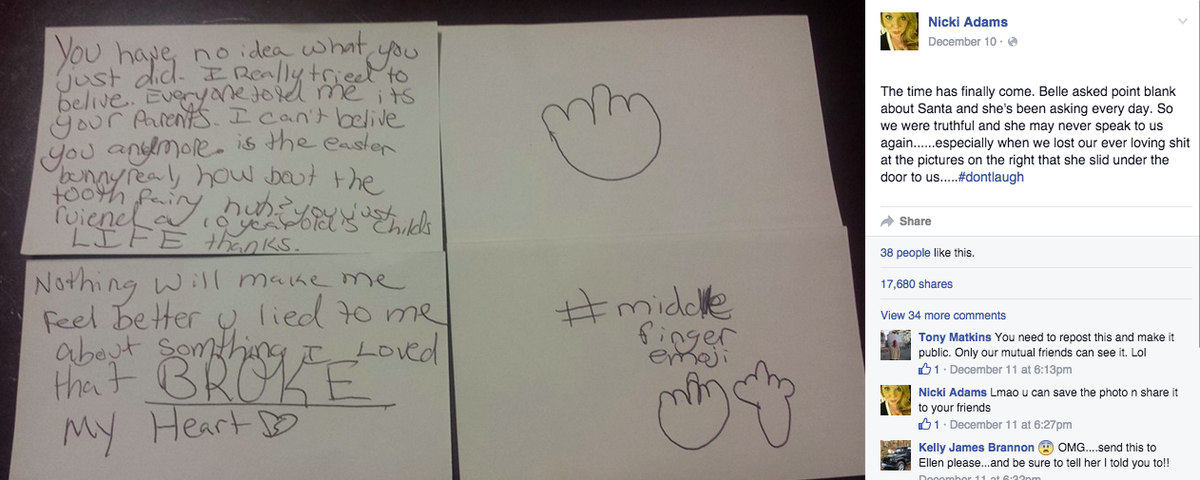 You have no idea what you
just did. I Really tried to
belive. Everyone toted me its
your Parents. I can't belive
you anymore. is the easter
bunny real, how bout the
tooth fairy huh? you just
ruiened a 10 year old's childs
LIFE thanks.
Nothing will make me
Feel better u lied to me
about somthing I Loved
that BROKE
My Heart
#middle
finger
emoji
Nicki Adams
December 10 ·
The time has finally come. Belle asked point blank
about Santa and she's been asking every day. So
we were truthful and she may never speak to us
again......especially when we lost our ever loving shit
at the pictures on the right that she slid under the
door to us.....#dontlaugh
Share
38 people like this.
17,680 shares
View 34 more comments
Tony Matkins You need to repost this and make it
public. Only our mutual friends can see it. Lol
1 · December 11 at 6:13pm
Nicki Adams Lmao u can save the photo n share it
to your friends
1 · December 11 at 6:27pm
Kelly James Brannon OMG....send this to
Ellen please...and be sure to tell her I told you to!!
December 11 at 6:32pm